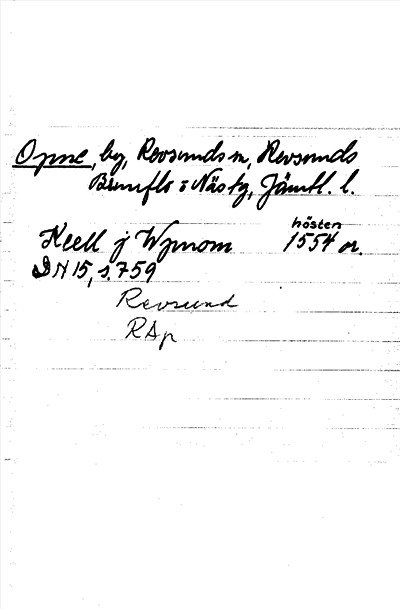 Opne, by, Revsunds sn, Revsunds
Brunflo o Näs tg, Jämtl. l.
hösten
Keell j Wpnom 1554 or.
DN 15, s. 759
Revsund
RAp